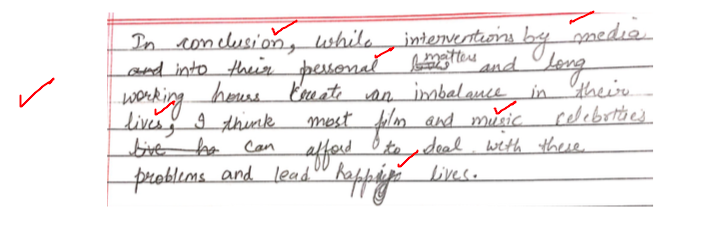 In conclusion, while interventions by media
and into their personal matters and long
working hours create an imbalance in their
lives, I think most film and music celebrities
live ha can afford to deal with these
problems and lead happy lives.